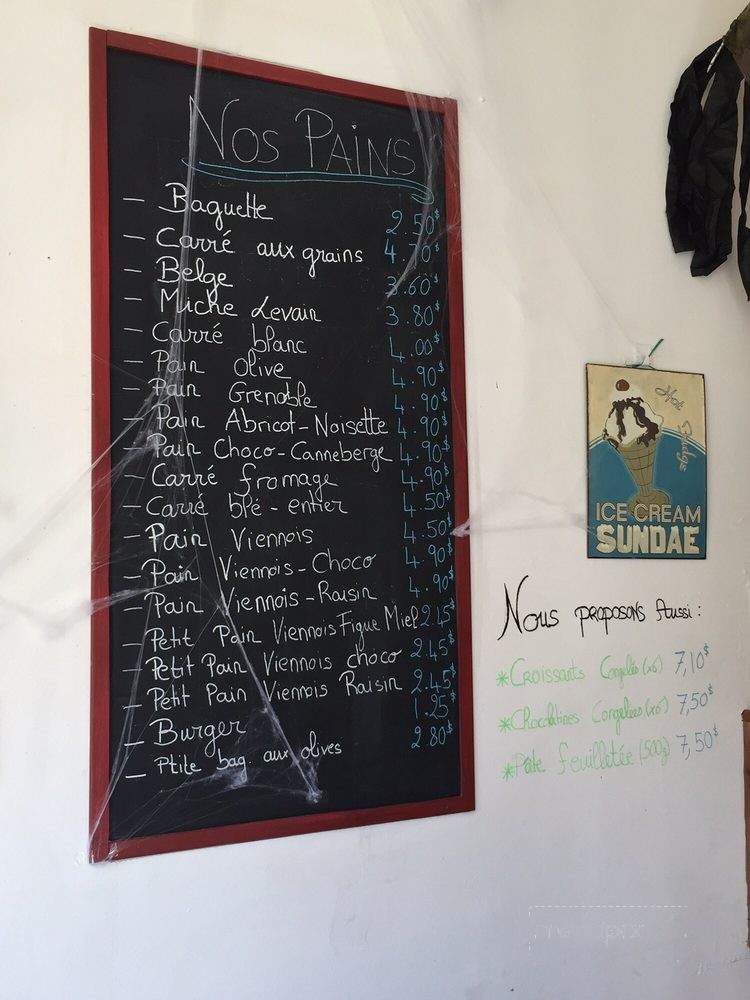 Nos Pains
- Baguette 2.50$
- Carré aux grains 4.70$
- Belge 3.60$
- Miche Levain 3.80$
- Carré blanc 4.00$
- Pain Olive 4.90$
- Pain Grenoble 4.90$
- Pain Abricot-Noisette 4.90$
- Pain Choco-Canneberge 4.90$
- Carré fromage 4.90$
- Carré blé-entier 4.50$
- Pain Viennois 4.50$
- Pain Viennois-Choco 4.90$
- Pain Viennois-Raisin 4.90$
- Petit Pain Viennois Figue Miel 2.45$
- Petit Pain Viennois choco 2.45$
- Petit Pain Viennois Raisin 2.45$
- Burger 1.25$
- Ptite bag. aux olives 2.80$
Hot Fudge
ICE CREAM
SUNDAE
Nous proposons Aussi :
*Croissants Congelés (x6) 7,10$
*Chocolatines Congelées (x6) 7,50$
*Pâte feuilletée (500g) 7,50$
menupix